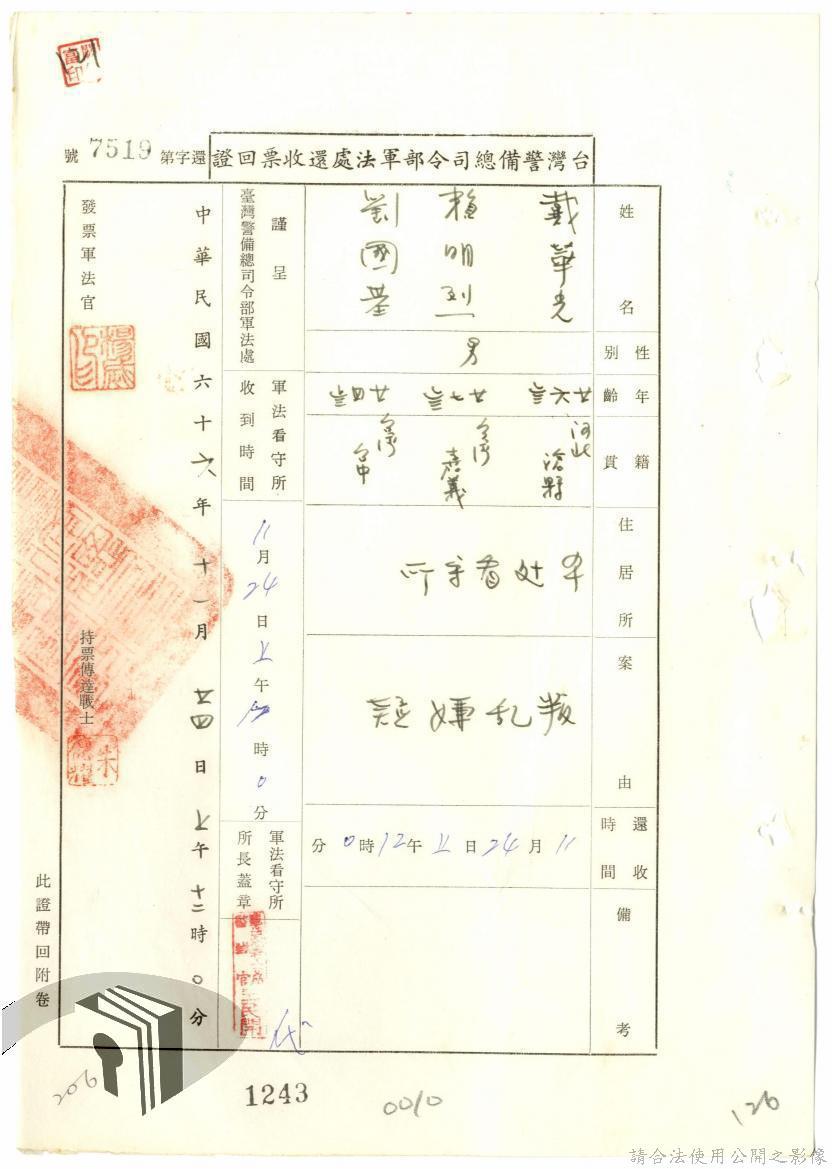 台灣警備總司令部軍法處還收票回證
還字第7519號
姓名
戴華光
賴明烈
劉國基
性別
男
年齡
廿六歲
廿七歲
廿四歲
籍貫
河北
滄縣
台灣
嘉義
台灣
台中
住居所
本處看守所
案由
叛乱嫌疑
還收時間
11月24日上午12時0分
備考
謹呈
臺灣警備總司令部軍法處
軍法看守所
收到時間
11月24日上午
時0分
軍法看守所
所長蓋章
代
中華民國六十六年十一月廿四日上午十二時0分
發票軍法官
持票傳達戰士
此證帶回附卷
206
1243
0010
126
請合法使用公開之影像